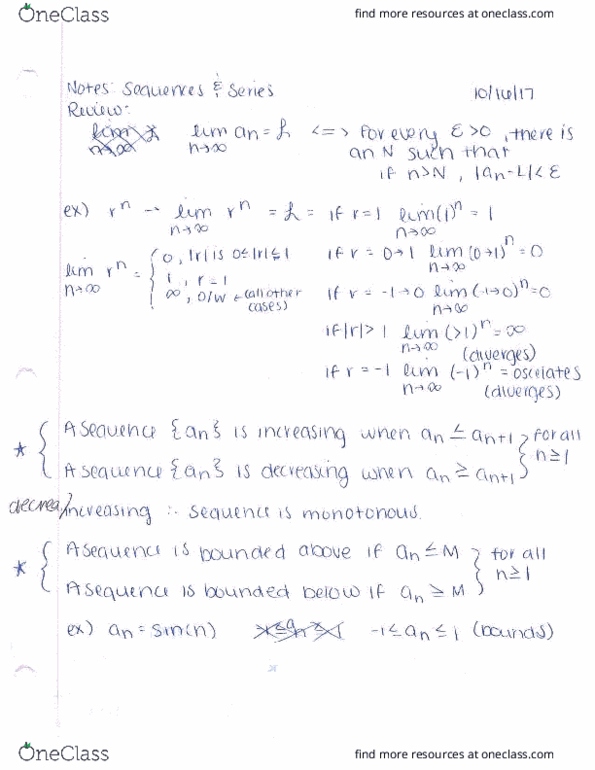 OneClass
find more resources at oneclass.com
Notes: Sequences & Series 10/16/17
Review:
lim n→∞ an = L <=> for every ε>0, there is
an N such that
if n>N, |an-L|<ε
ex) r^n → lim n→∞ r^n = L = if r=1 lim n→∞ (1)^n = 1
lim n→∞ r^n = { 0, |r| is 0≤|r|≤1 if r = 0→1 lim n→∞ (0→1)^n = 0
1, r=1
∞, o/w ←(all other cases) if r = -1→0 lim n→∞ (-1→0)^n = 0
if |r|>1 lim n→∞ (>1)^n = ∞
(diverges)
if r = -1 lim n→∞ (-1)^n = oscilates
(diverges)
* { A sequence {an} is increasing when an ≤ an+1 } for all
A sequence {an} is decreasing when an ≥ an+1 n≥1
decrea/increasing :- sequence is monotonous.
* { A sequence is bounded above if an ≤ M } for all
A sequence is bounded below if an ≥ M n≥1
ex) an = sin(n) -1 ≤ an ≤ 1 (bounds)
OneClass
find more resources at oneclass.com